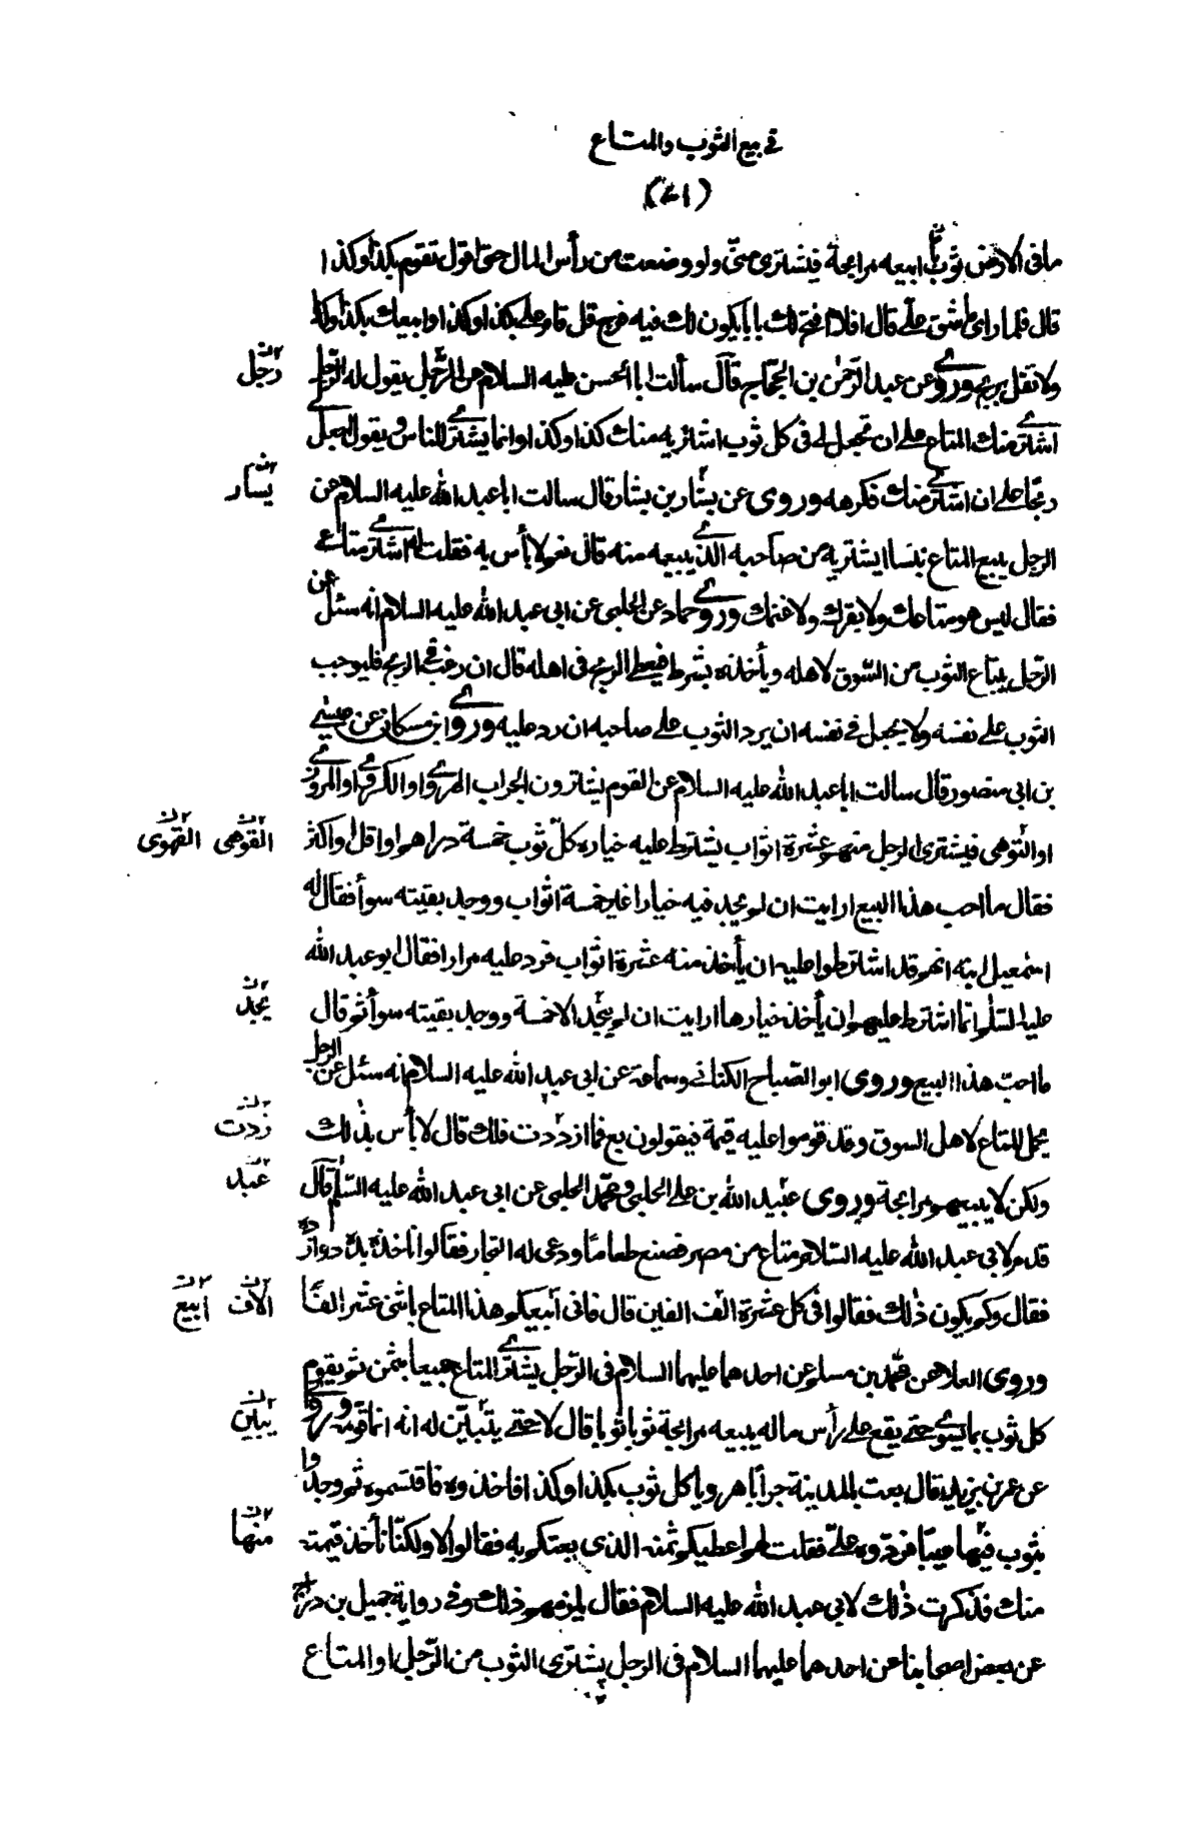 في بيع الثوب والمتاع
(٧١)
ما في الارض ثوب ابيعه مرابحة فيشترى منى ولو وضعت من رأس المال حتى اقول تقوم بكذا وكذا
قال فلما راى ما شق على قال افلا افتح لك بابا يكون لك فيه فرج قل قام على بكذا وكذا وابيعك بكذا وكذا
ولا تقل بربح وروى عن عبد الرحمٰن بن الحجاج قال سألت ابا الحسن عليه السلام عن الرّجل يقول له الرجل
رجل
اشتر منك المتاع على ان تجعل لى فى كل ثوب اشتريه منك كذا وكذا وانما يشترى للناس ويقول اجعل لى
ربحا على ان اشترى منك فكرهه وروى عن بشار بن بشار قال سالت ابا عبد الله عليه السلام عن
يسار
الرجل يبيع المتاع بنسا ايشتريه من صاحبه الذى يبيعه منه قال نعم لا بأس به فقلت له اشترى متاعى
فقال ليس هو متاعك ولا بقرك ولا غنمك وروى حماد عن الحلبى عن ابى عبد الله عليه السلام انه سئل عن
الرّجل يبتاع الثوب من السّوق لاهله ويأخذه بشرط فيعطى الربح فى اهله قال ان رغب فى الربح فليوجب
الثوب على نفسه ولا يجعل فى نفسه ان يرد الثوب على صاحبه ان رد عليه وروى ابن مسكان عن عيسى
بن ابى منصور قال سالت ابا عبد الله عليه السلام عن القوم يشترون الجراب الهروى او الكرفى او المروزى
او القوهى فيشترى الرجل منهم عشرة اثواب يشترط عليه خياره كلّ ثوب خمسة دراهم او اقل او اكثر
القوهى القهوى
فقال ما احب هذا البيع ارايت ان لم يجد فيه خيارا غير خمسة اثواب ووجد بقيته سوأ فقال له
اسمعيل ابنه انهم قد اشترطوا عليه ان يأخذ منه عشرة اثواب فرد عليه مرارا فقال ابو عبد الله
عليه السّلم انما اشترط عليهم ان يأخذ خيارها ارايت ان لم يجد الا خمسة ووجد بقيته سوأ ثم قال
يجد
ما احبّ هذا البيع وروى ابو الصّباح الكنانى وسماعة عن ابى عبد الله عليه السلام انه سئل عن الرجل
يحمل المتاع لاهل السوق وقد قوموا عليه قيمة فيقولون بع فما ازددت فلك قال لا بأس بذٰلك
زدت
ولكن لا يبيعهم مرابحة وروى عبيد الله بن على الحلبى ومحمّد الحلبى عن ابى عبد الله عليه السّلم قال
عبد
قدم لابى عبد الله عليه السّلام متاع من مصر فصنع طعاما ودعى له التجار فقالوا ناخذه بده دوازده
فقال وكم يكون ذٰلك فقالوا فى كل عشرة الف الفين قال فانى أبيعكم هذا المتاع باثنى عشر الفًا
الاف ابيع
وروى العلا عن محمّد بن مسلم عن احدهما عليهما السلام فى الرّجل يشترى المتاع جميعا بثمن ثم يقوم
كل ثوب بما يسوى حتى يقع على رأس ماله يبيعه مرابحة ثوبا ثوبا قال لا حتى يتبيّن له انه انما قومه وروى
يبين
عن عمر بن يزيد قال بعت بالمدينة جرابا هرويا كل ثوب بكذا وكذا فاخذوه فاقتسموه ثم وجدوا
بثوب فيها عيبا فردوه علىّ فقلت لهم اعطيكم ثمنه الذى بعتكم به فقالوا لا ولكنّا نأخذ قيمته
منها
منك فذكرت ذٰلك لابى عبد الله عليه السلام فقال يلزمهم ذلك وفى رواية جميل بن دراج
عن بعض اصحابنا عن احدهما عليهما السلام فى الرجل يشترى الثوب من الرّجل او المتاع